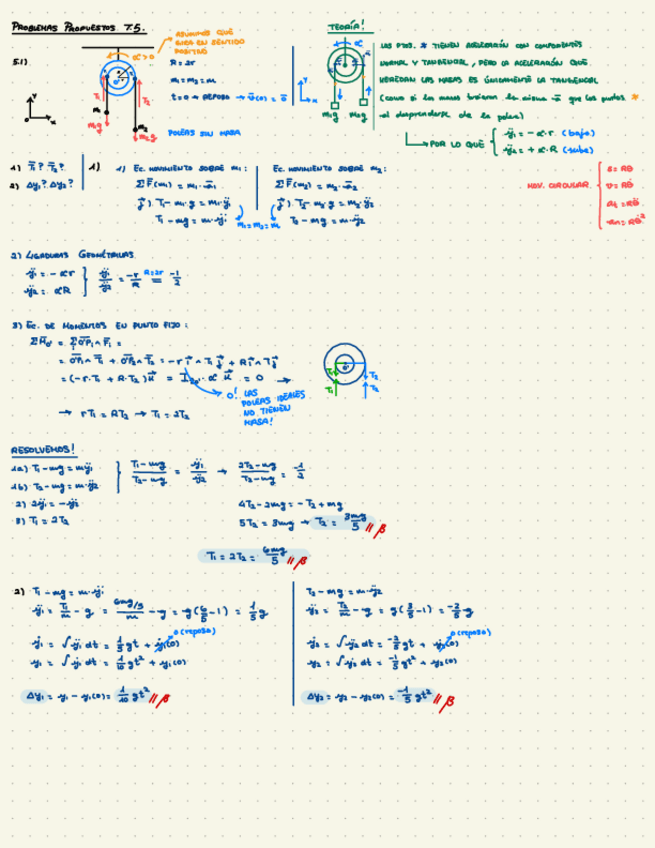 PROBLEMAS PROPUESTOS T.5.
5.1)
ASUMIMOS QUE GIRA EN SENTIDO POSITIVO
α > 0
R = 2r
m₁ = m₂ = m
t = 0 → REPOSO → v̄(0) = 0̄
POLEAS SIN MASA
TEORÍA!
LOS PTOS. * TIENEN ACELERACIÓN CON COMPONENTES
NORMAL Y TANGENCIAL, PERO LA ACELERACIÓN QUE
HEREDAN LAS MASAS ES ÚNICAMENTE LA TANGENCIAL
(como si las masas tuvieran la misma ā que los puntos *
al desprenderse de la polea)
POR LO QUE
ÿ₁ = -α·r (baja)
ÿ₂ = +α·R (sube)
MOV. CIRCULAR
s = Rθ
v = Rθ̇
at = Rθ̈
an = Rθ̇²
1) T̄₁? T̄₂?
2) Δy₁? Δy₂?
1) 1) EC. MOVIMIENTO SOBRE m₁:
ΣF̄(m₁) = m₁·ā₁
j̄) T₁ - m₁·g = m₁·ÿ₁
T₁ - mg = m·ÿ₁
m₁ = m₂ = m
EC. MOVIMIENTO SOBRE m₂:
ΣF̄(m₂) = m₂·ā₂
j̄) T₂ - m₂·g = m₂·ÿ₂
T₂ - mg = m·ÿ₂
2) LIGADURAS GEOMÉTRICAS
ÿ₁ = -αr
ÿ₂ = αR
ÿ₁/ÿ₂ = -r/R = -1/2
R=2r
3) EC. DE MOMENTOS EN PUNTO FIJO:
= (-r·T₁ + R·T₂) k̄ = I·α k̄ = 0 →
0! LAS POLEAS IDEALES NO TIENEN MASA!
→ rT₁ = RT₂ → T₁ = 2T₂
RESOLVEMOS!
1a) T₁ - mg = mÿ₁
1b) T₂ - mg = m·ÿ₂
2) 2ÿ₁ = -ÿ₂
3) T₁ = 2T₂
(T₁ - mg)/(T₂ - mg) = ÿ₁/ÿ₂ → (2T₂ - mg)/(T₂ - mg) = -1/2
4T₂ - 2mg = -T₂ + mg
5T₂ = 3mg → T₂ = 3mg/5 // β
T₁ = 2T₂ = 6mg/5 // β
2) T₁ - mg = m·ÿ₁
ÿ₁ = T₁/m - g = (6mg/5)/m - g = g(6/5 - 1) = 1/5 g
ẏ₁ = ∫ÿ₁ dt = 1/5 gt + ẏ₁(0)
0 (reposo)
y₁ = ∫ẏ₁ dt = 1/10 gt² + y₁(0)
Δy₁ = y₁ - y₁(0) = 1/10 gt² // β
T₂ - mg = m·ÿ₂
ÿ₂ = T₂/m - g = g(3/5 - 1) = -2/5 g
ẏ₂ = ∫ÿ₂ dt = -2/5 gt + ẏ₂(0)
0 (reposo)
y₂ = ∫ẏ₂ dt = -1/5 gt² + y₂(0)
Δy₂ = y₂ - y₂(0) = -1/5 gt² // β